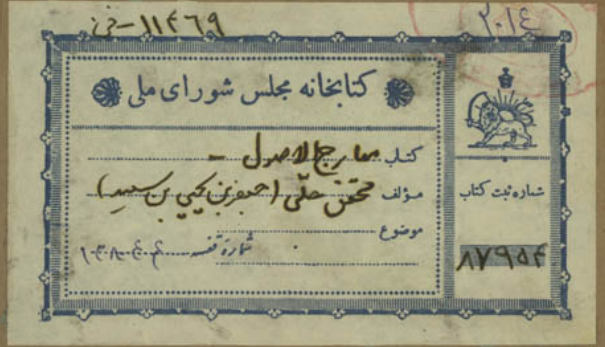 ۱۱۴۶۹-خی
۲۰۱۴
کتابخانه مجلس شورای ملی
کتاب معارج الاصول -
مؤلف محقق حلّی (جعفر بن یحیی بن سعید)
موضوع
شمارهٔ قفسه
شماره ثبت کتاب
۸۷۹۵۴